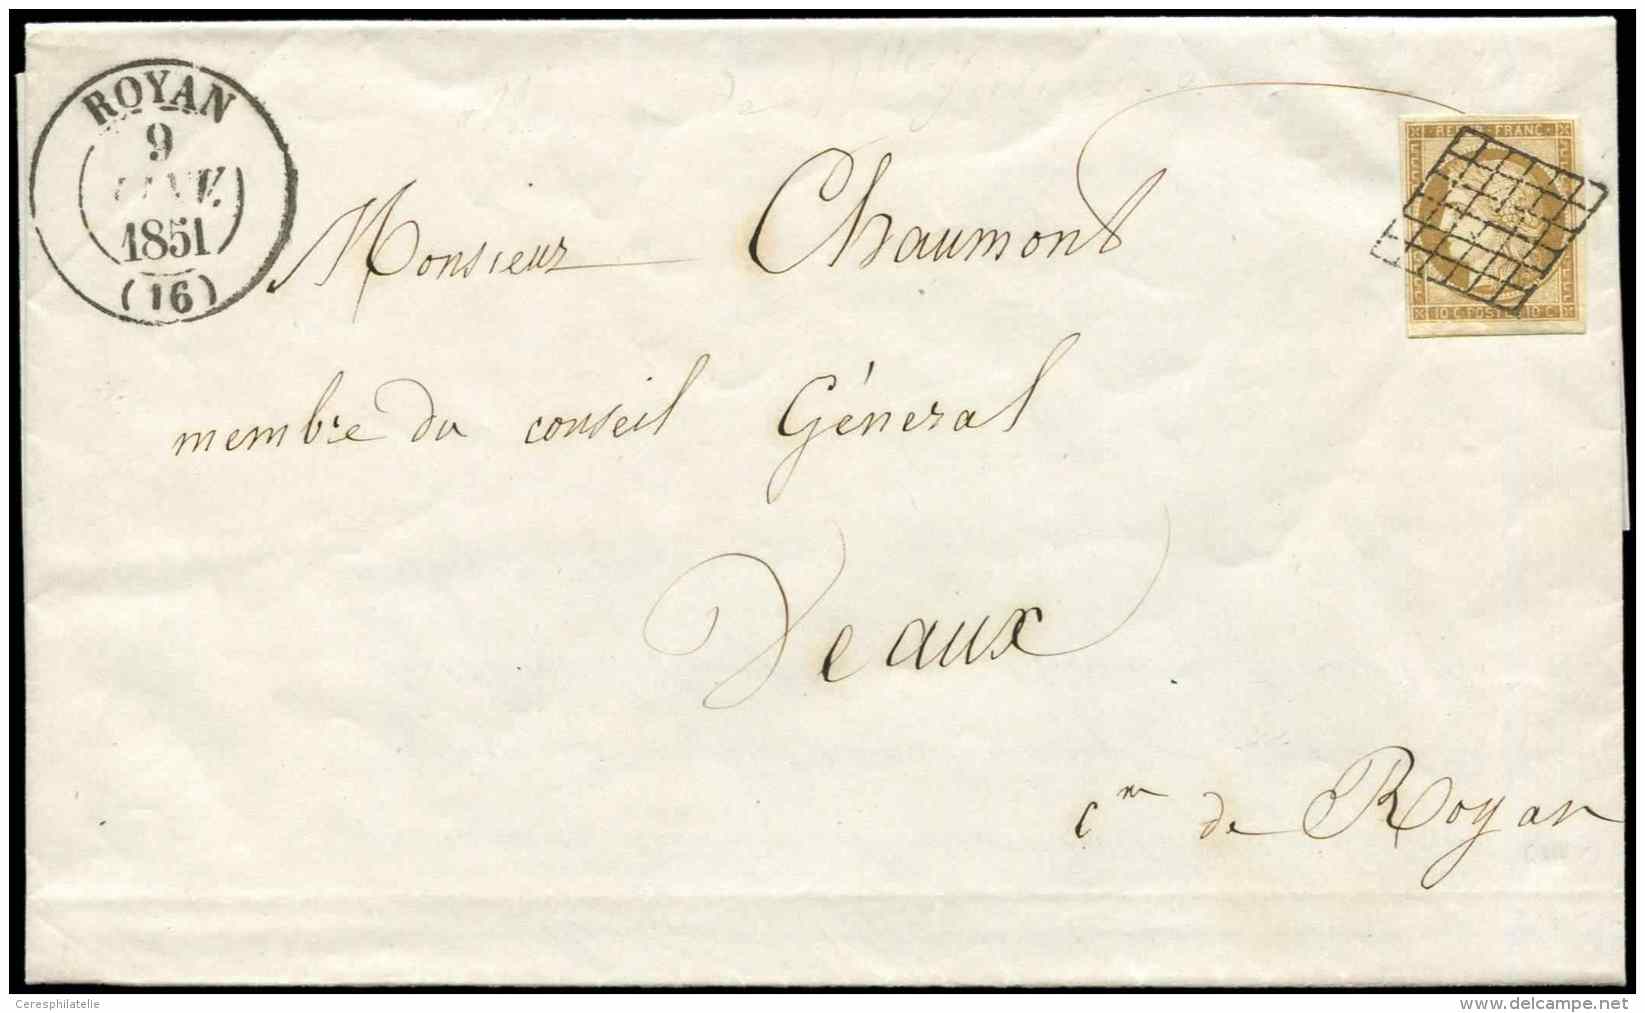 ROYAN
9
JANV.
1851
(16)
REPUB FRANC
10 C. POSTE 10 C
Monsieur Chaumont
membre du conseil Géneral
Veaux
cne de Royan
Ceresphilatelie
www.delcampe.net